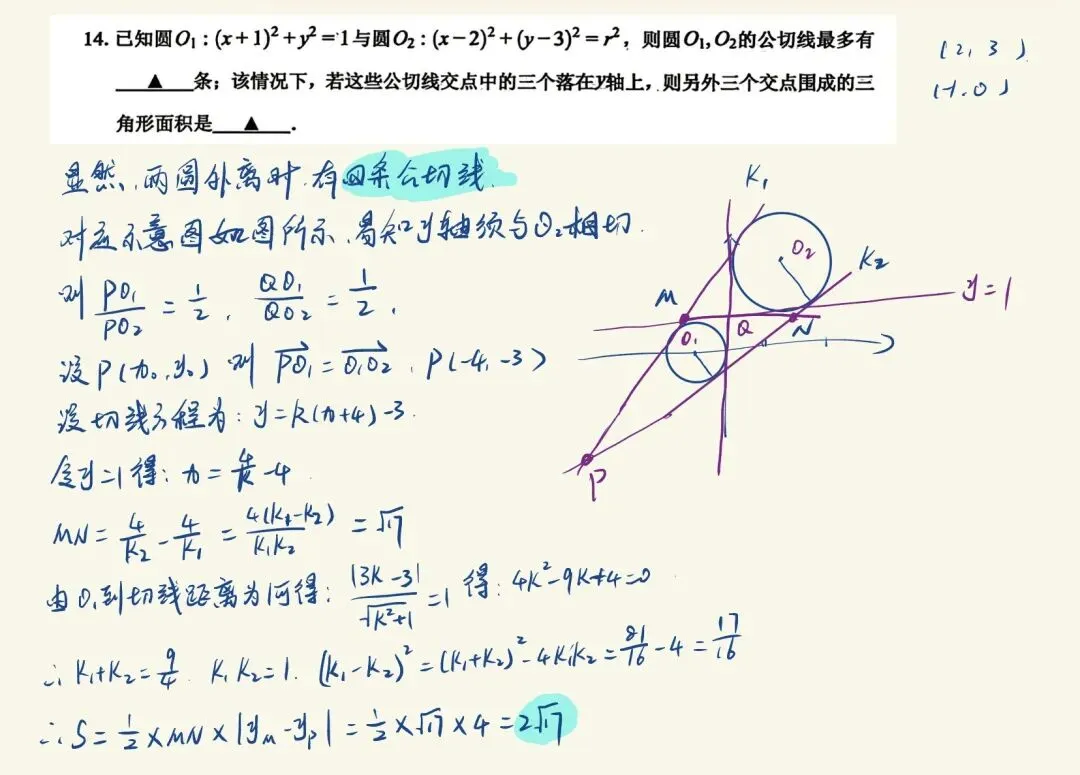 14. 已知圆O₁：(x+1)²+y²=1与圆O₂：(x−2)²+(y−3)²=r²，则圆O₁,O₂的公切线最多有
▲ 条；该情况下，若这些公切线交点中的三个落在y轴上，则另外三个交点围成的三
角形面积是 ▲ .
(2, 3)
(-1.0)
显然，两圆外离时，有四条公切线.
对应示意图如图所示，易知y轴须与O₂相切.
则 PO₁/PO₂ = 1/2 , QO₁/QO₂ = 1/2 ,
设P(x₀,y₀) 则 PO₁=O₁O₂ , P(-4,-3)
设切线方程为：y=k(x+4)-3.
令y=1得：x=4/k-4
MN=4/k₂-4/k₁=4(k₁-k₂)/k₁k₂=√17
由O₁到切线距离为1可得：|3k-3|/√k²+1=1 得：4k²-9k+4=0
∴k₁+k₂=9/4. k₁k₂=1. (k₁-k₂)²=(k₁+k₂)²-4k₁k₂=81/16-4=17/16
∴S=1/2×MN×|yM-yP|=1/2×√17×4=2√17
K₁
O₂
K₂
M
y=1
O₁
Q
N
P